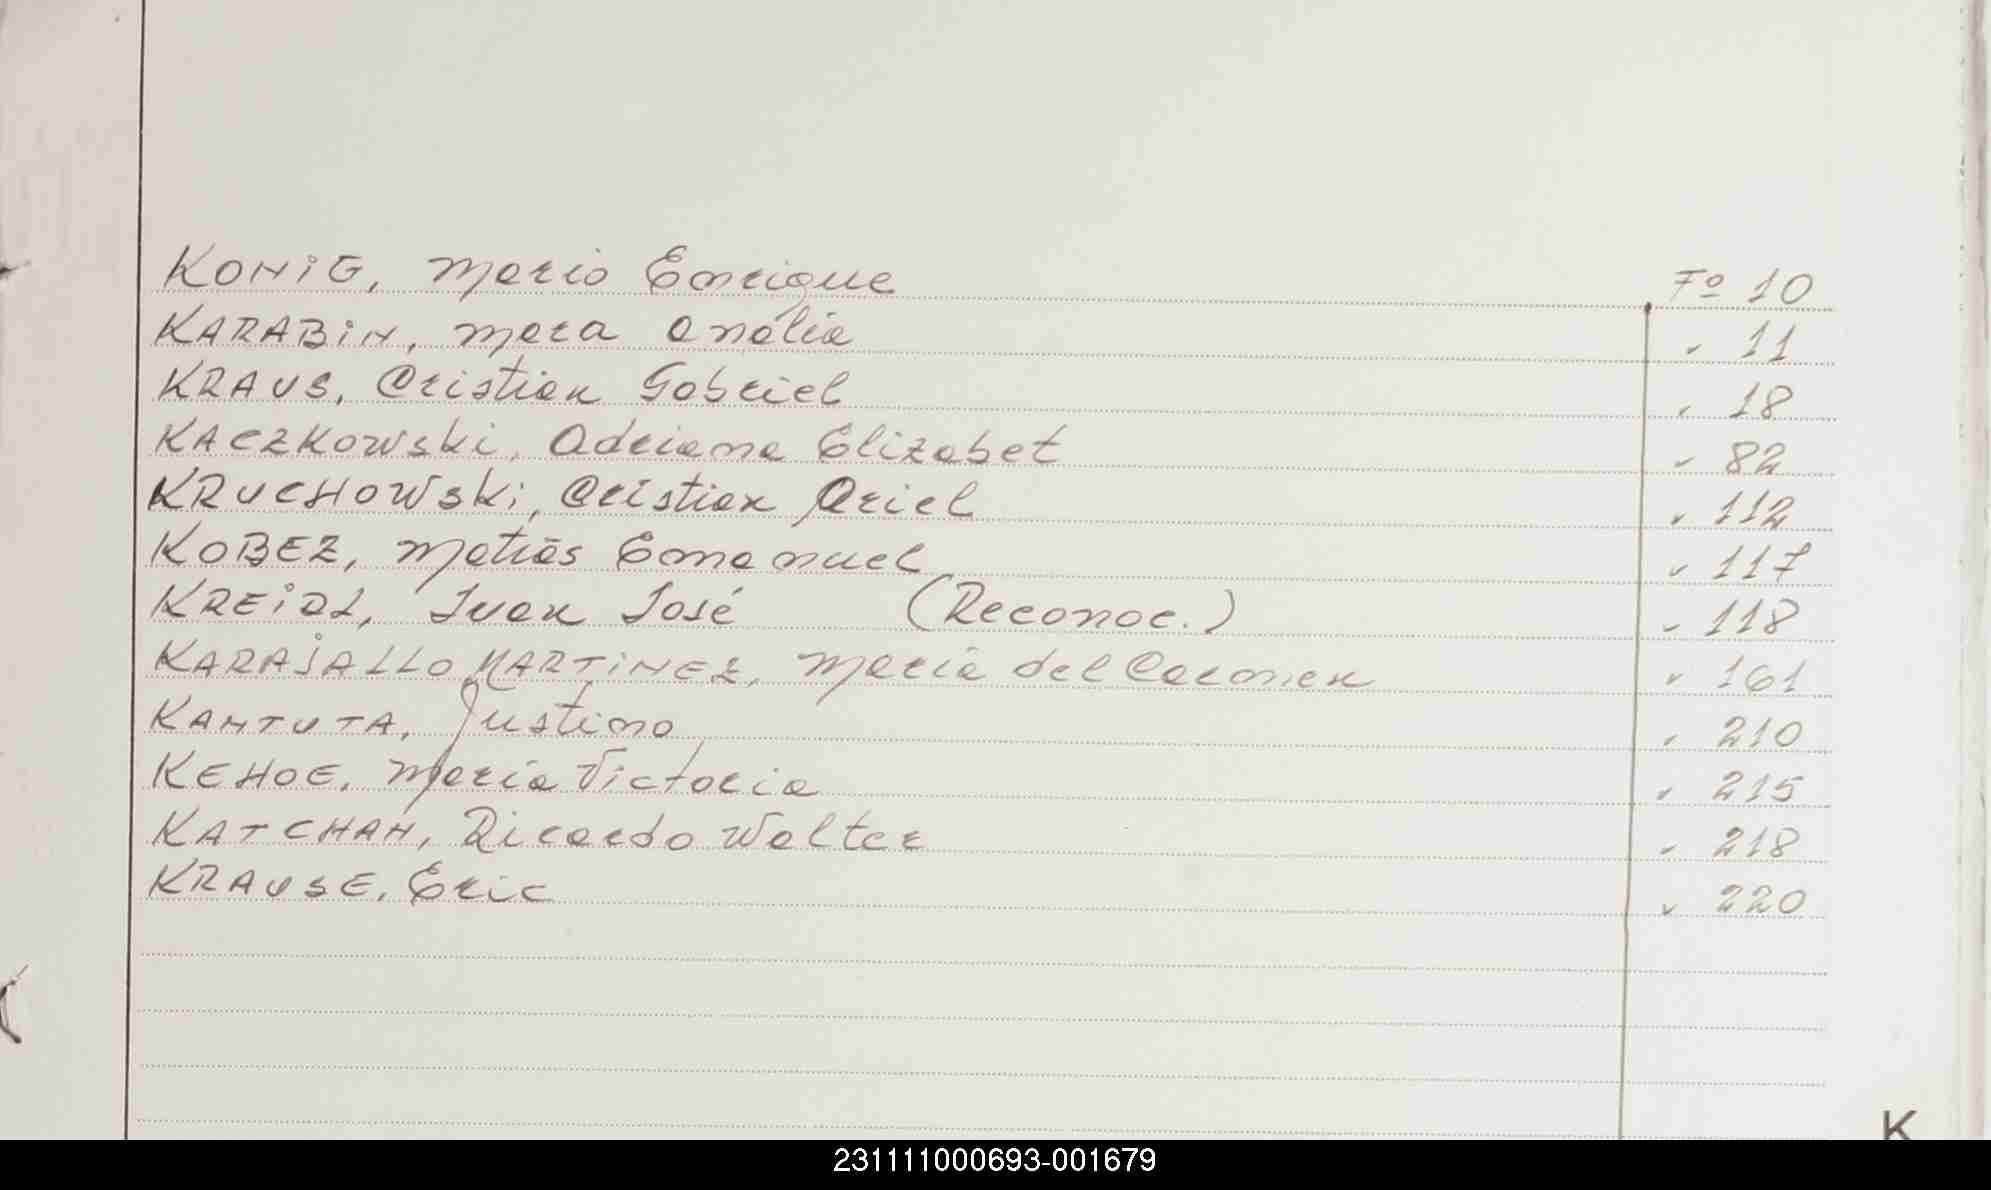 KONIG, Mario Enrique Fº 10
KARABIN, Mara Analia " 11
KRAUS, Cristian Gabriel " 18
KACZKOWSKI, Adriana Elizabet " 82
KRUCHOWSKI, Cristian Ariel " 112
KOBEZ, Matías Emanuel " 117
KREIDL, Ivan José (Reconoc.) " 118
KARAJALLO MARTINEZ, María del Carmen " 161
KANTUTA, Justino " 210
KEHOE, María Victoria " 215
KATCHAN, Ricardo Walter " 218
KRAUSE, Eric " 220
K
231111000693-001679